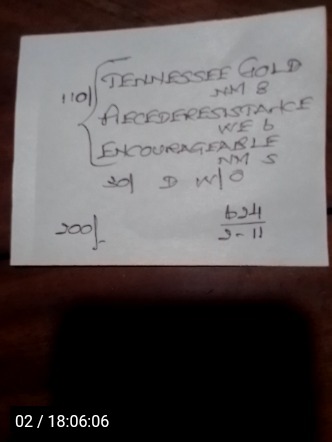 TENNESSEE GOLD
NM 8
110/
AECEDERESISTANCE
WE 6
ENCOURAGEABLE
NM S
20/ D W/O
200/-
624
2-11
02 / 18:06:06